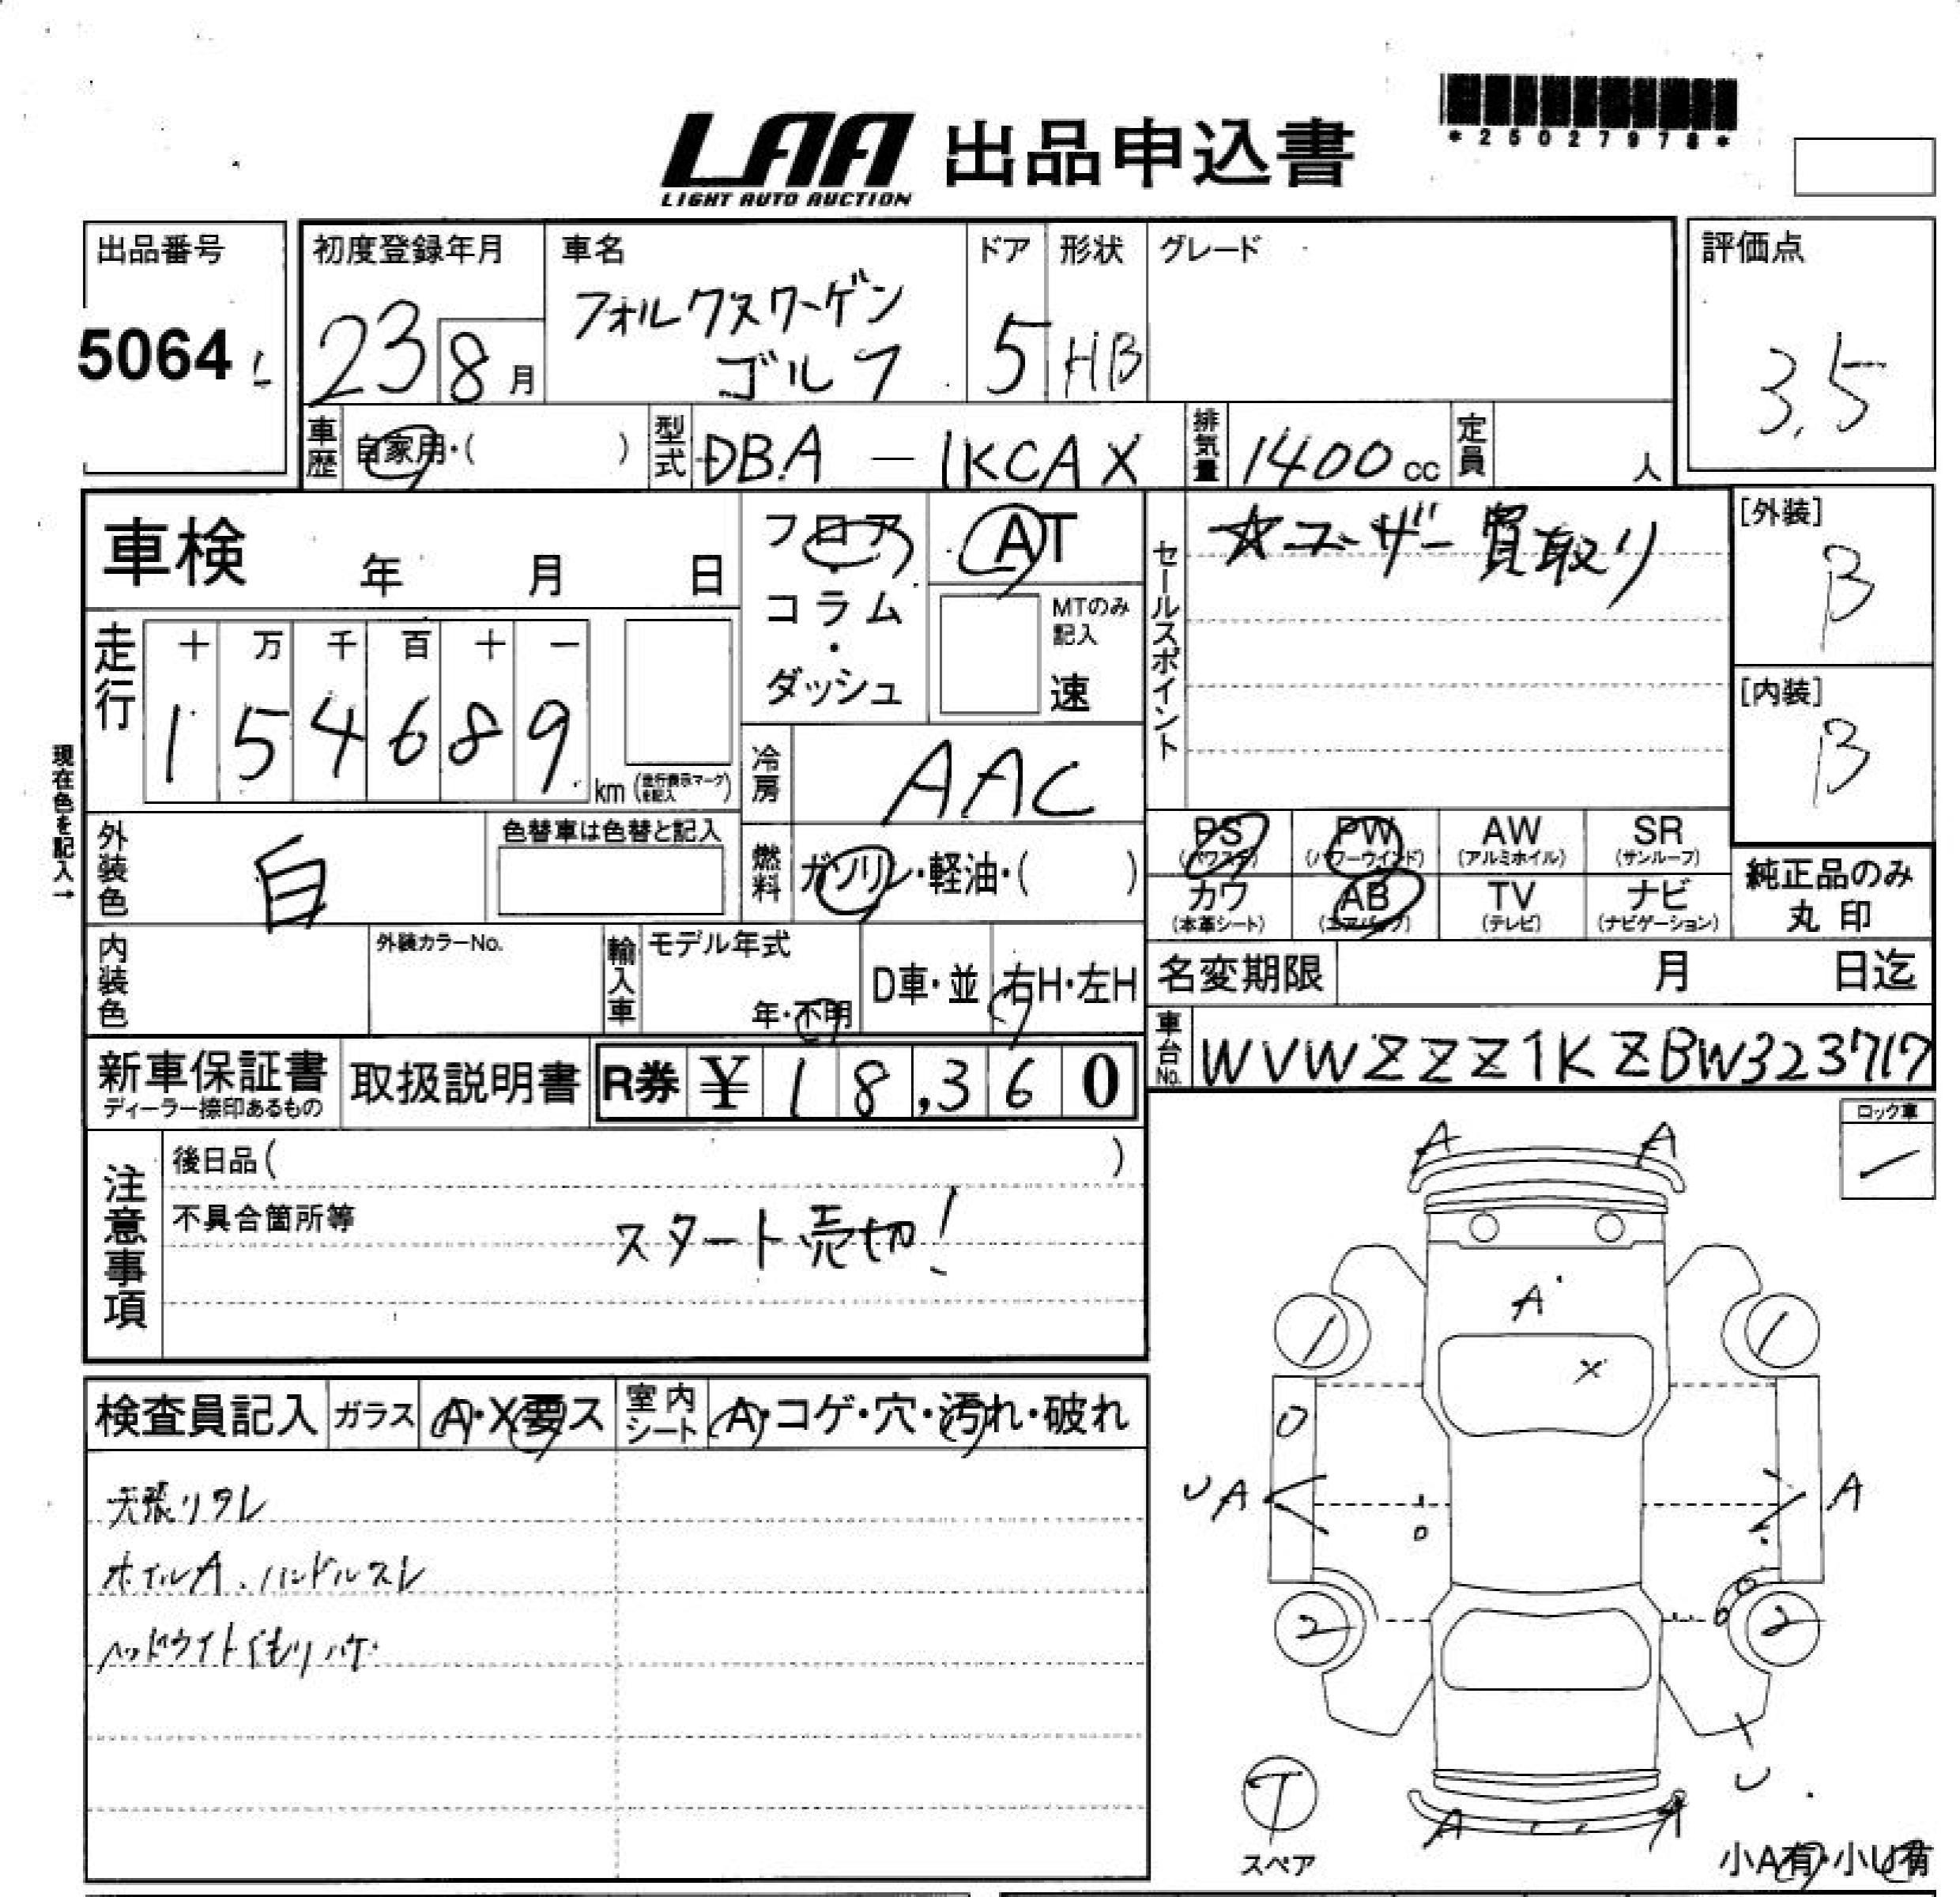 *25027978*
LAA 出品申込書
LIGHT AUTO AUCTION
出品番号
5064
初度登録年月
23 8月
車名
フォルクスワーゲン
ゴルフ
ドア
5
形状
HB
グレード
評価点
3.5
車歴 自家用・( )
型式 DBA-1KCAX
排気量 1400cc
定員 人
車検 年 月 日
フロア・コラム・ダッシュ
AT
MTのみ記入
速
セールスポイント
☆ユーザー買取り
[外装]
B
[内装]
B
走行
十 万 千 百 十 一
1 5 4 6 8 9 km (走行表示マークを記入)
現在色を記入→
冷房 AAC
外装色 白
色替車は色替と記入
燃料 ガソリン・軽油・( )
PS (パワステ) PW (パワーウインド) AW (アルミホイル) SR (サンルーフ)
カワ (本革シート) AB (エアバッグ) TV (テレビ) ナビ (ナビゲーション)
純正品のみ
丸印
内装色
外装カラーNo.
輸入車
モデル年式
年・不明
D車・並
右H・左H
名変期限 月 日迄
車台No. WVWZZZ1KZBW323717
新車保証書
ディーラー捺印あるもの
取扱説明書
R券 ¥18,360
ロック車
注意事項
後日品( )
不具合箇所等
スタート売切!
検査員記入
ガラス A・X要ス
室内シート A・コゲ・穴・汚れ・破れ
天張りタレ
ホイルA、ハンドルスレ
ヘッドライトくもりハゲ
A A
A
1 X 1
0
UA A
2 2
U
T
スペア
A A
小A有・小U有